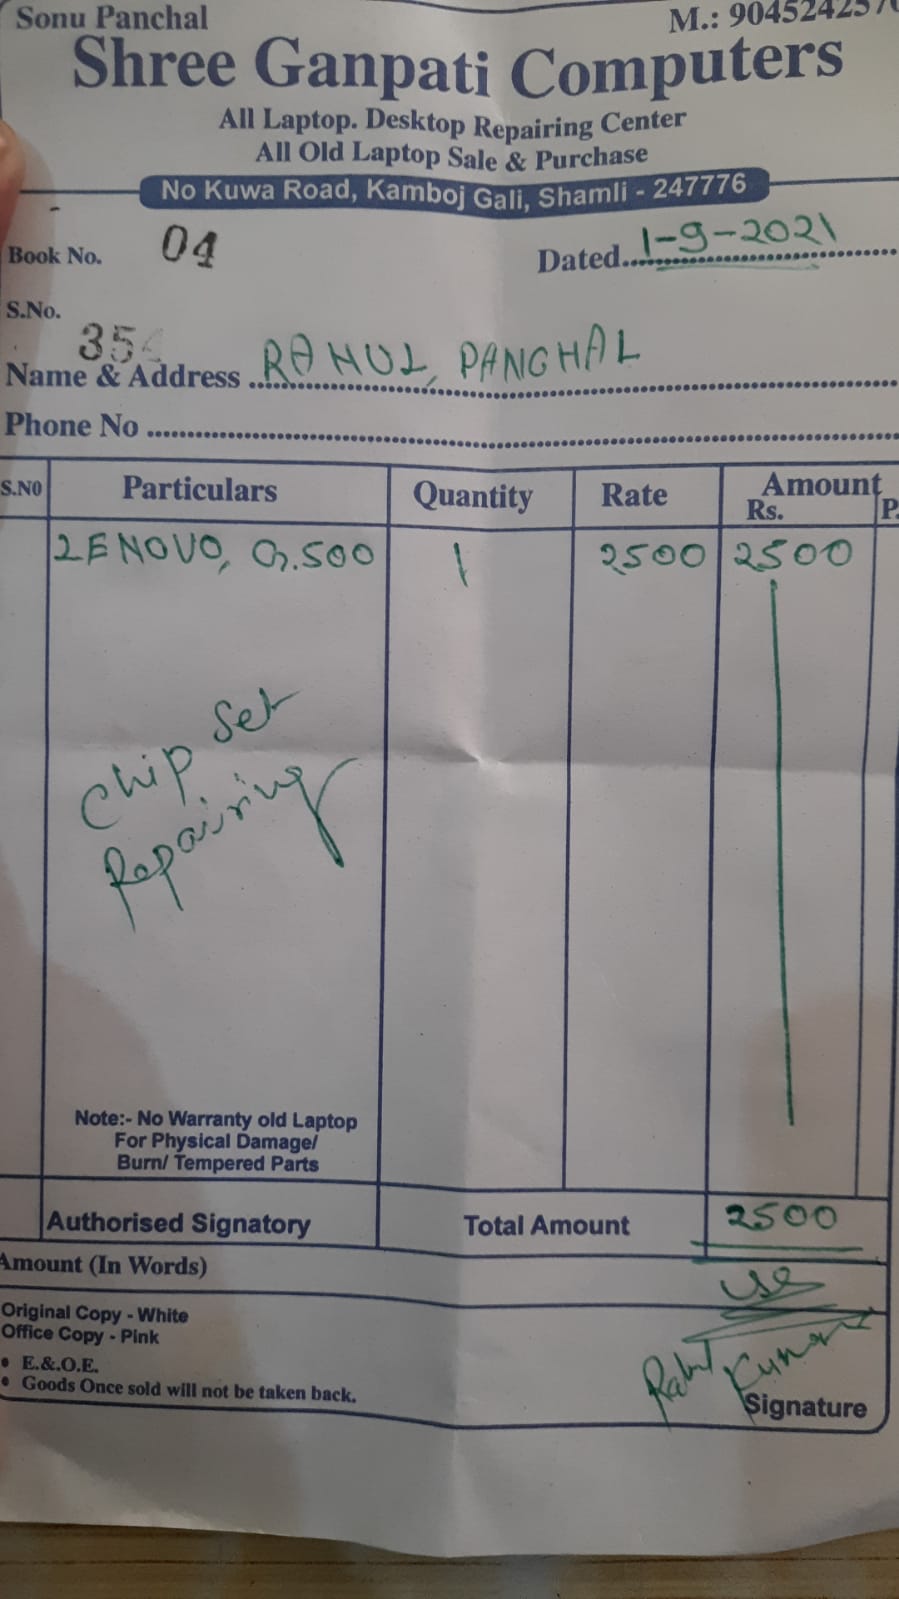 Sonu Panchal
M.: 904524257
Shree Ganpati Computers
All Laptop. Desktop Repairing Center
All Old Laptop Sale & Purchase
No Kuwa Road, Kamboj Gali, Shamli - 247776
Book No. 04
Dated 1-9-2021
S.No.
35
Name & Address RAHUL, PANGHAL
Phone No
S.NO Particulars Quantity Rate Amount
Rs. P.
LENOVO, G.500 1 2500 2500
Chip Set
Repairing
Note:- No Warranty old Laptop
For Physical Damage/
Burn/ Tempered Parts
Authorised Signatory Total Amount 2500
Amount (In Words)
Original Copy - White
Office Copy - Pink
• E.&.O.E.
• Goods Once sold will not be taken back.
Rahul Kumar
Signature